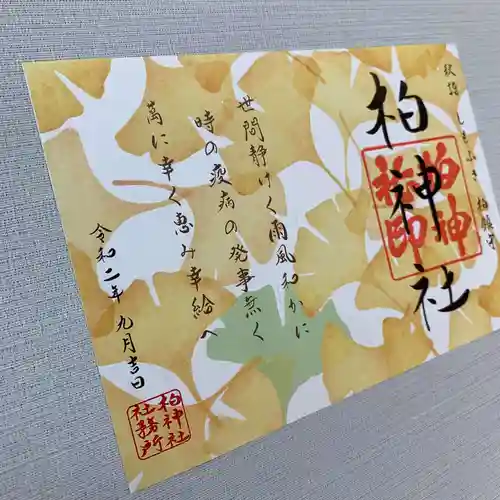 柏神社
柏神
社印
世間静けく雨風和かに
時の疫病の発事無く
萬に幸く恵み幸給へ
令和二年 九月吉日
柏神社
社務所